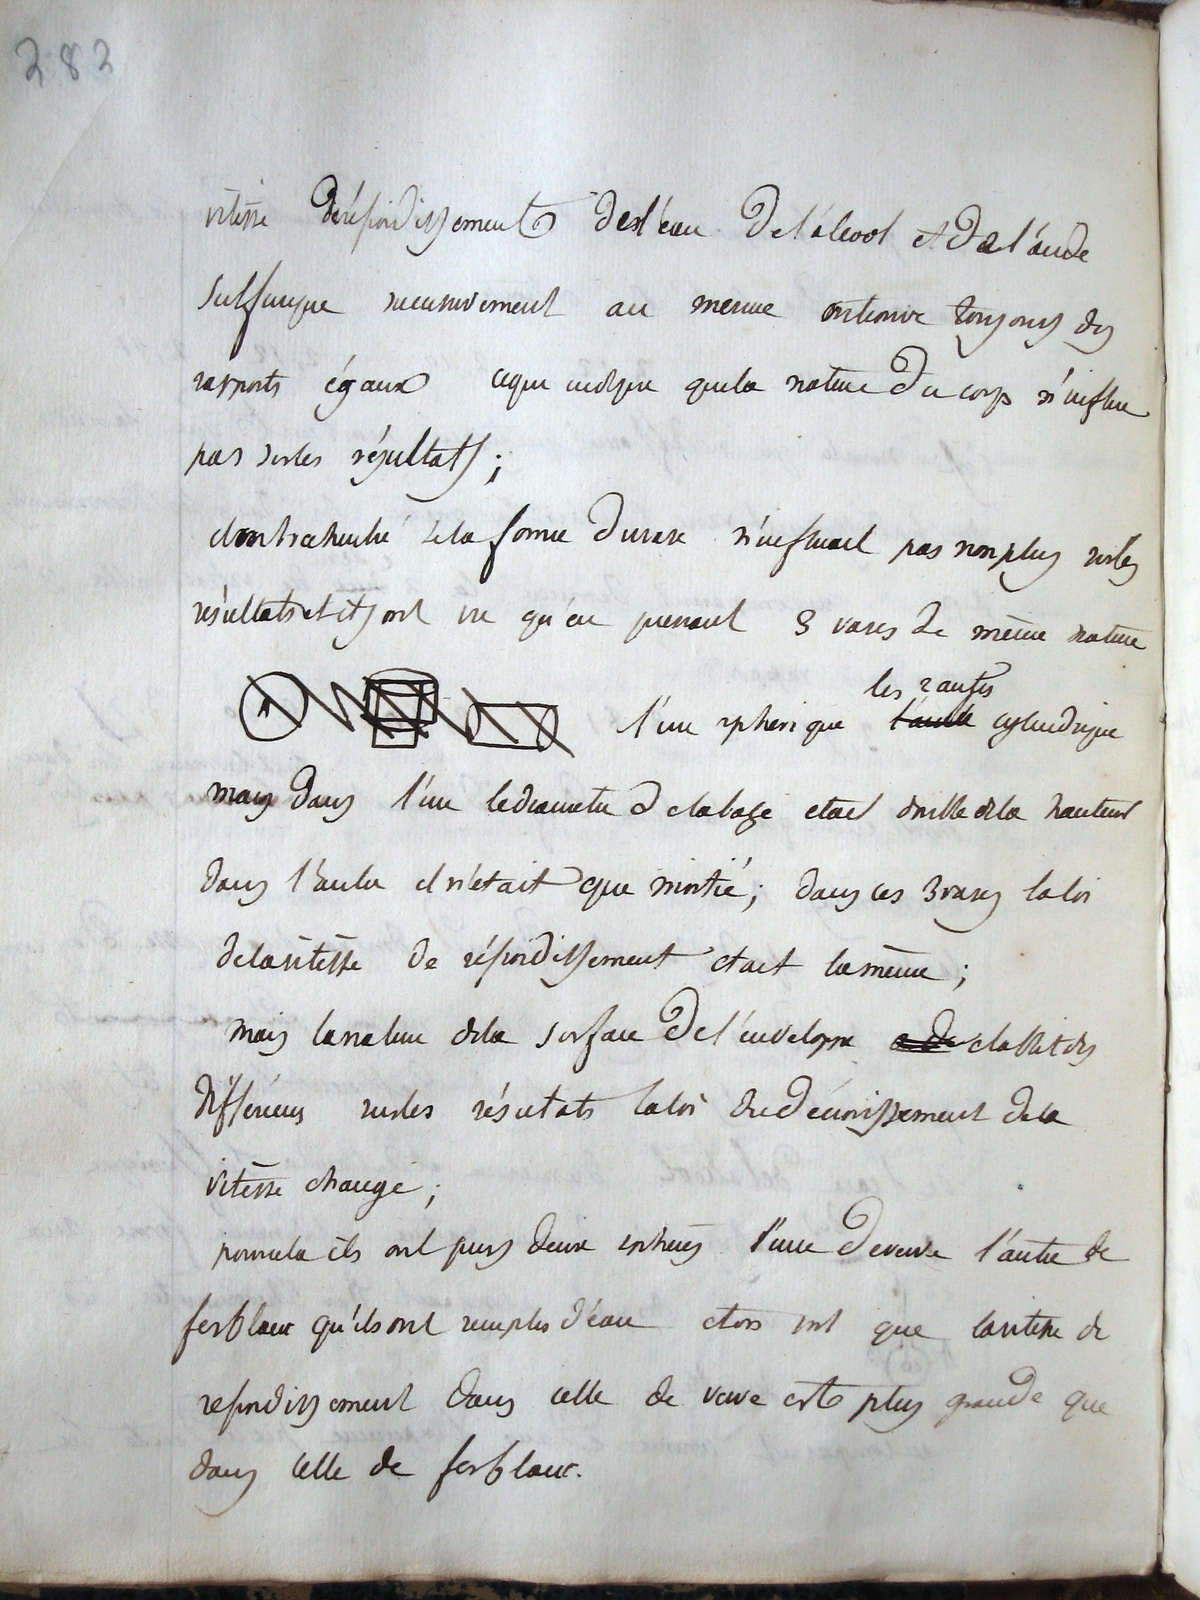 282
vitesse de réfroidissement de l'eau de l'alcool et de l'acide
sulfurique successivement au meme on trouve toujours des
rapports égaux ce qui indique que la nature du corps n'influe
pas sur les résultats ;
ils ont cherché si la forme du vase n'influait pas non plus sur les
résultats et ils ont vu qu'en prenant 3 vases de même nature
les 2 autres
l'une sphérique l'autre cylindrique
mais dans l'un le diametre de la base etait double de la hauteur
dans l'autre il n'était que moitié ; dans ces 3 vases la loi
de la vitesse de réfroidissement était la même ;
mais la nature de la surface de l'enveloppe etablit des
différences sur les résultats la loi du décroissement de la
vitesse change ;
pour cela ils ont pris deux sphères l'une de verre l'autre de
ferblanc qu'ils ont remplis d'eau et ont vu que la vitesse de
refroidissement dans celle de verre est plus grande que
dans celle de ferblanc.